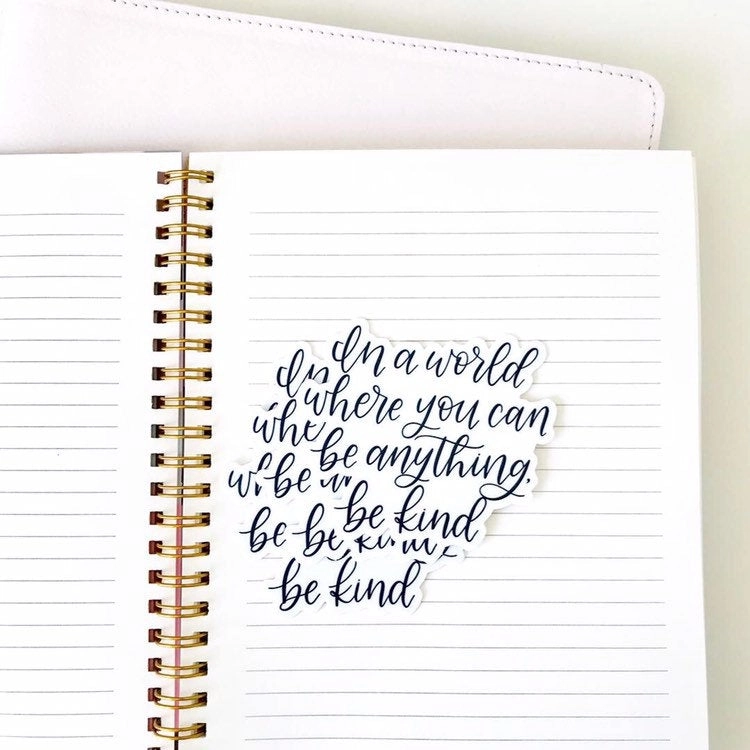 In a world
where you can
be anything,
be kind
In
be
be
be
be kind